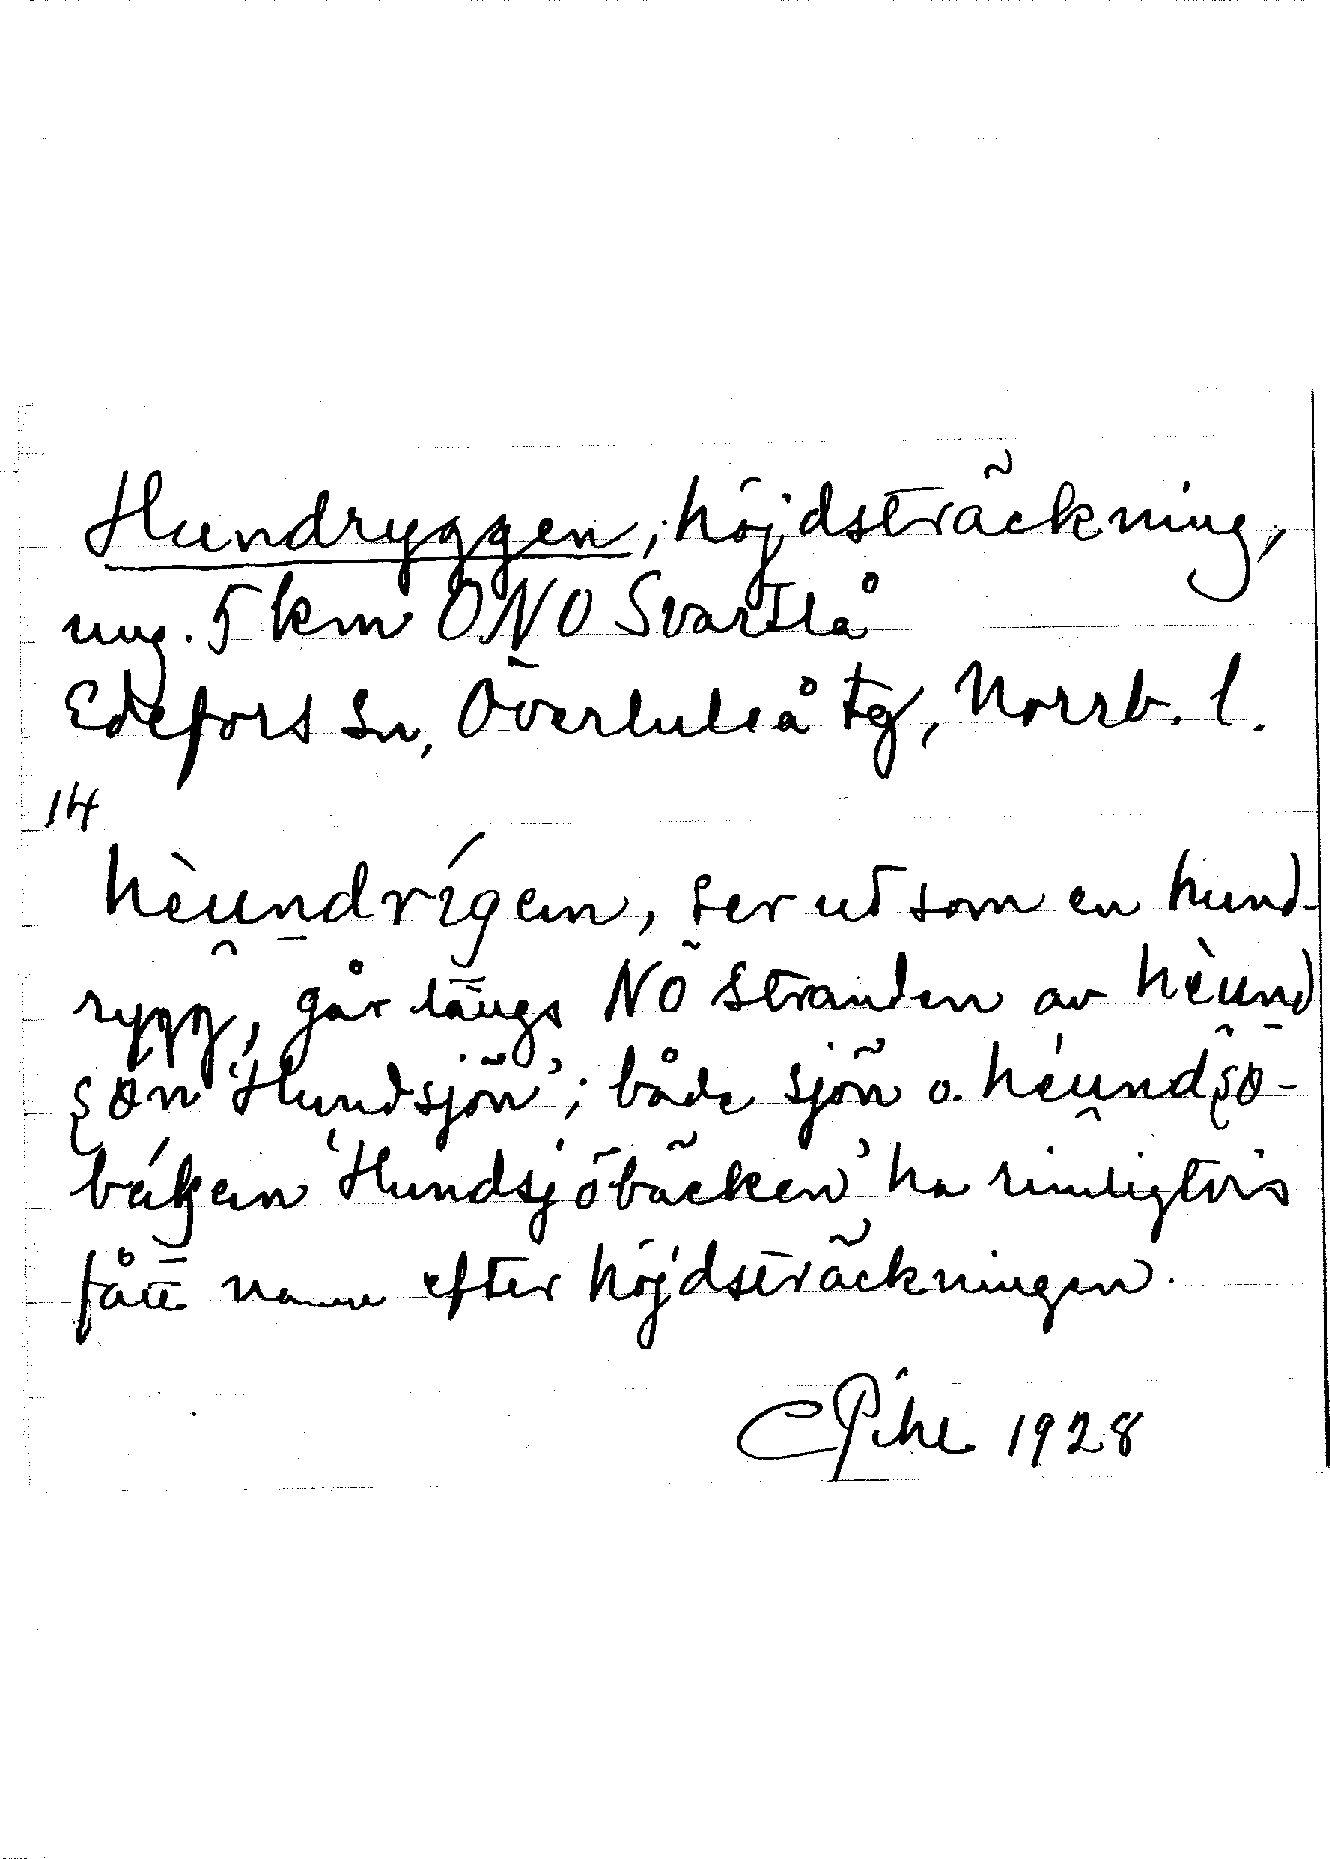 Hundryggen, höjdsträckning,
ung. 5 km ONO Svartlå
Edefors sn, Överluleå tg, Norrb. l.
14
hèundrígen, ser ut som en hund-
rygg, går längs NÖ stranden av hèund
şøn 'Hundsjön'; både sjön o. hèundşø-
báken 'Hundsjöbäcken' ha rimligtvis
fått namn efter höjdsträckningen.
C Pihl 1928